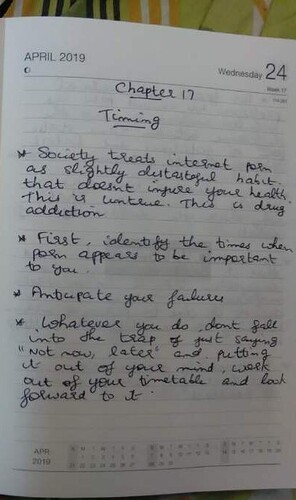 APRIL 2019
Wednesday 24
Week 17
Chapter 17
Timing
* Society treats internet porn
as slightly distasteful habit
that doesnt injure your health.
This is untrue. This is drug
addiction
* First, identify the times when
porn appears to be important
to you.
* Anticipate your failures
* Whatever you do, dont fall
into the trap of just saying
"Not now, later" and putting
it out of your mind. work
out of your timetable and look
forward to it.
APR
2019